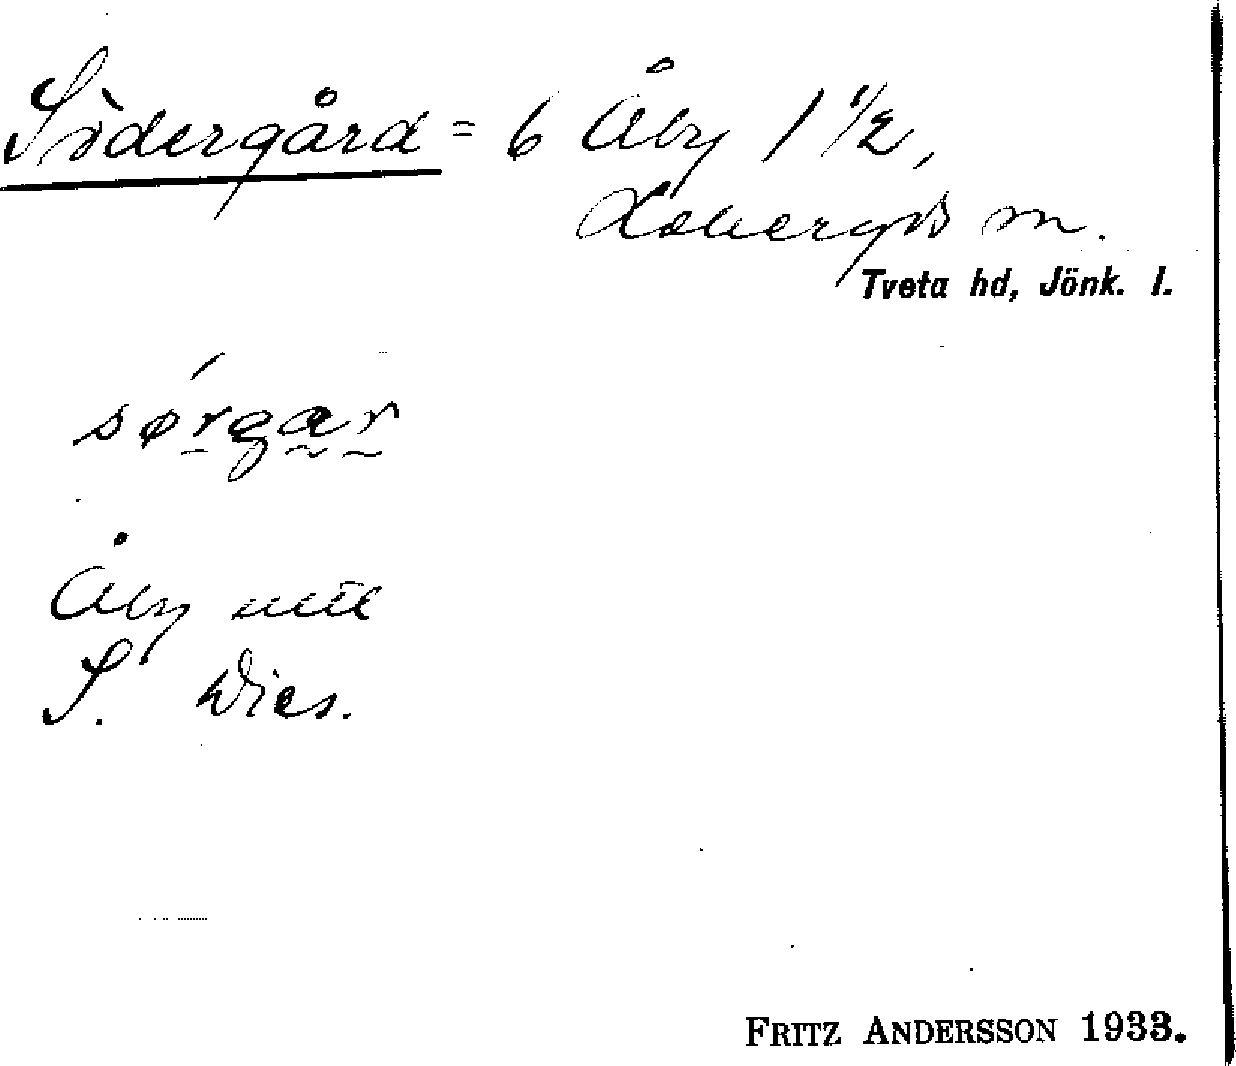 Södergård = 6 Åby 1 1/2,
Lekeryds sn.
Tveta hd, Jönk. l.
sǿrgar
Åby
S.
FRITZ ANDERSSON 1933.